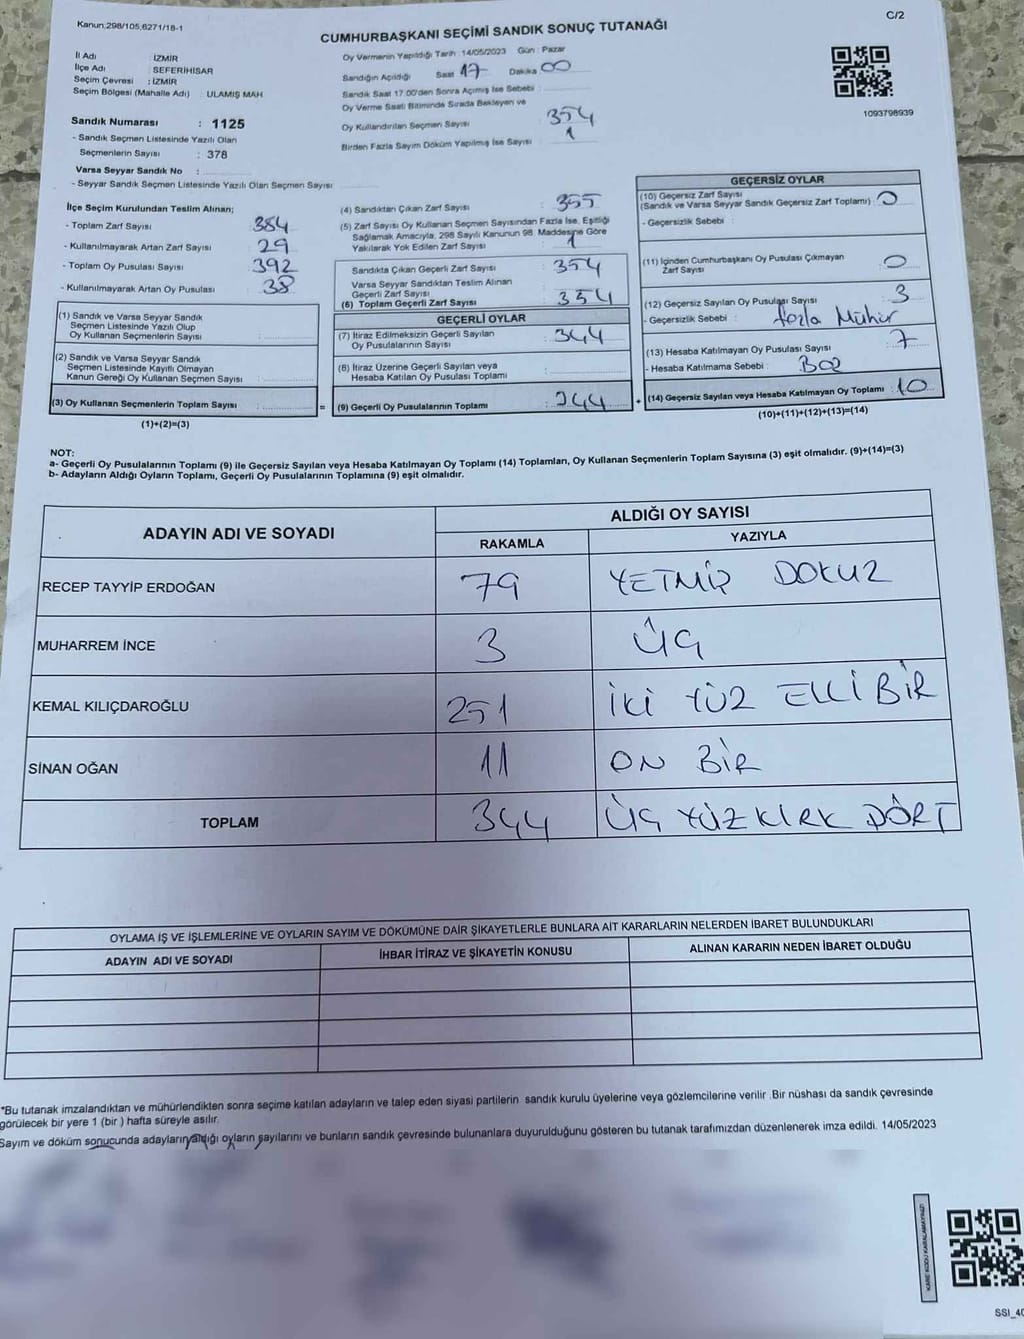 Kanun,298/105,6271/18-1
C/2
CUMHURBAŞKANI SEÇİMİ SANDIK SONUÇ TUTANAĞI
İl Adı : İZMİR
İlçe Adı : SEFERİHİSAR
Seçim Çevresi : İZMİR
Seçim Bölgesi (Mahalle Adı) : ULAMIŞ MAH
Sandık Numarası : 1125
- Sandık Seçmen Listesinde Yazılı Olan
Seçmenlerin Sayısı : 378
Varsa Seyyar Sandık No :
- Seyyar Sandık Seçmen Listesinde Yazılı Olan Seçmen Sayısı
Oy Vermenin Yapıldığı Tarih : 14/05/2023 Gün : Pazar
Sandığın Açıldığı Saat 17 Dakika 00
Sandık Saat 17.00'den Sonra Açımış İse Sebebi :
Oy Verme Saati Bitiminde Sırada Bekleyen ve
Oy Kullandırılan Seçmen Sayısı 354
Birden Fazla Sayım Döküm Yapılmış İse Sayısı 1
1093798939
İlçe Seçim Kurulundan Teslim Alınan;
- Toplam Zarf Sayısı 384
- Kullanılmayarak Artan Zarf Sayısı 29
- Toplam Oy Pusulası Sayısı 392
- Kullanılmayarak Artan Oy Pusulası 38
(1) Sandık ve Varsa Seyyar Sandık
Seçmen Listesinde Yazılı Olup
Oy Kullanan Seçmen Sayısı :
(2) Sandık ve Varsa Seyyar Sandık
Seçmen Listesinde Kayıtlı Olmayan
Kanun Gereği Oy Kullanan Seçmen Sayısı :
(3) Oy Kullanan Seçmenlerin Toplam Sayısı :
(1)+(2)=(3)
(4) Sandıktan Çıkan Zarf Sayısı : 355
(5) Zarf Sayısı Oy Kullanan Seçmen Sayısından Fazla İse, Eşitliği
Sağlamak Amacıyla, 298 Sayılı Kanunun 98. Maddesine Göre
Yakılarak Yok Edilen Zarf Sayısı : 1
Sandıkta Çıkan Geçerli Zarf Sayısı : 354
Varsa Seyyar Sandıktan Teslim Alınan
Geçerli Zarf Sayısı :
(6) Toplam Geçerli Zarf Sayısı : 354
GEÇERLİ OYLAR
(7) İtiraz Edilmeksizin Geçerli Sayılan
Oy Pusulalarının Sayısı : 344
(8) İtiraz Üzerine Geçerli Sayılan veya
Hesaba Katılan Oy Pusulası Toplamı :
= (9) Geçerli Oy Pusulalarının Toplamı : 344 +
GEÇERSİZ OYLAR
(10) Geçersiz Zarf Sayısı
(Sandık ve Varsa Seyyar Sandık Geçersiz Zarf Toplamı) : 0
- Geçersizlik Sebebi :
(11) İçinden Cumhurbaşkanı Oy Pusulası Çıkmayan
Zarf Sayısı : 0
(12) Geçersiz Sayılan Oy Pusulası Sayısı : 3
- Geçersizlik Sebebi : fazla Mühür
(13) Hesaba Katılmayan Oy Pusulası Sayısı : 7
- Hesaba Katılmama Sebebi : BOŞ
(14) Geçersiz Sayılan veya Hesaba Katılmayan Oy Toplamı : 10
(10)+(11)+(12)+(13)=(14)
NOT:
a- Geçerli Oy Pusulalarının Toplamı (9) ile Geçersiz Sayılan veya Hesaba Katılmayan Oy Toplamı (14) Toplamları, Oy Kullanan Seçmenlerin Toplam Sayısına (3) eşit olmalıdır. (9)+(14)=(3)
b- Adayların Aldığı Oyların Toplamı, Geçerli Oy Pusulalarının Toplamına (9) eşit olmalıdır.
ADAYIN ADI VE SOYADI
ALDIĞI OY SAYISI
RAKAMLA YAZIYLA
RECEP TAYYİP ERDOĞAN 79 YETMİŞ DOKUZ
MUHARREM İNCE 3 ÜÇ
KEMAL KILIÇDAROĞLU 251 İKİ YÜZ ELLİ BİR
SİNAN OĞAN 11 ON BİR
TOPLAM 344 ÜÇ YÜZ KIRK DÖRT
OYLAMA İŞ VE İŞLEMLERİNE VE OYLARIN SAYIM VE DÖKÜMÜNE DAİR ŞİKAYETLERLE BUNLARA AİT KARARLARIN NELERDEN İBARET BULUNDUKLARI
ADAYIN ADI VE SOYADI İHBAR İTİRAZ VE ŞİKAYETİN KONUSU ALINAN KARARIN NEDEN İBARET OLDUĞU
*Bu tutanak imzalandıktan ve mühürlendikten sonra seçime katılan adayların ve talep eden siyasi partilerin sandık kurulu üyelerine veya gözlemcilerine verilir .Bir nüshası da sandık çevresinde
görülecek bir yere 1 (bir ) hafta süreyle asılır.
Sayım ve döküm sonucunda adayların aldığı oyların sayılarını ve bunların sandık çevresinde bulunanlara duyurulduğunu gösteren bu tutanak tarafımızdan düzenlenerek imza edildi. 14/05/2023
KARE KODU KARALAMAYINIZ!
SSI_40